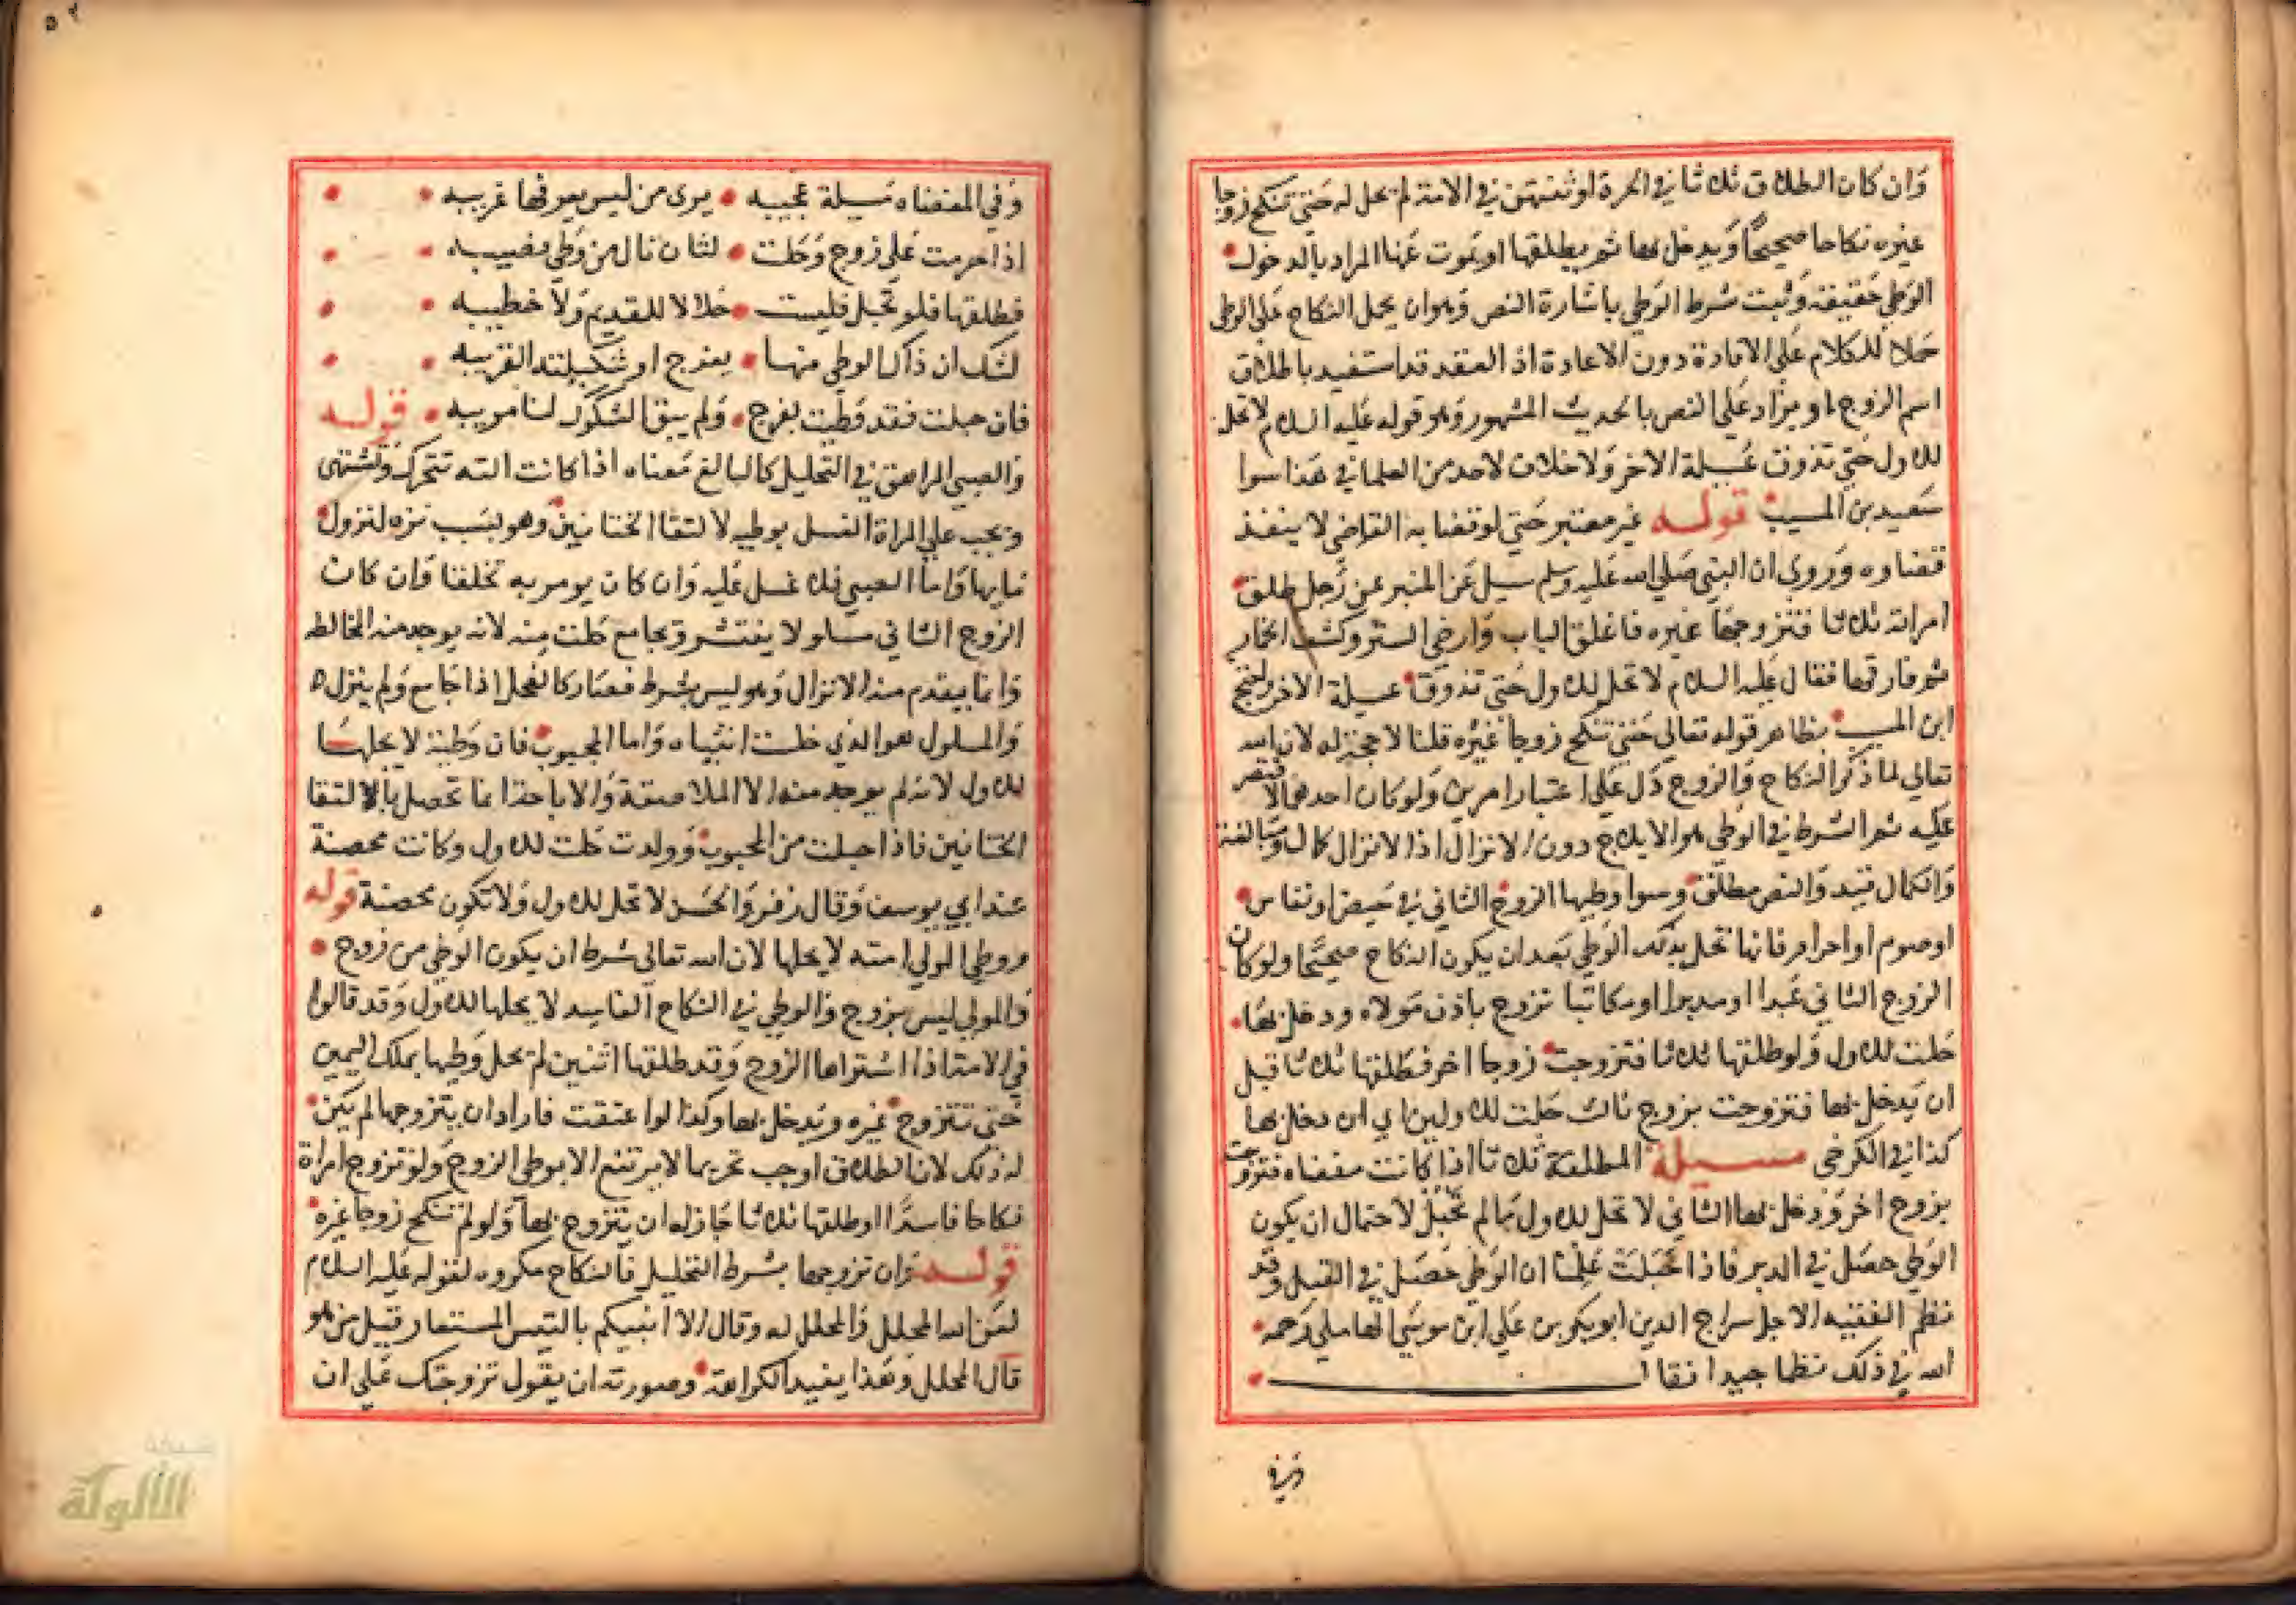 وان كان الطلاق ثلاثا في الحرة او ثنتين في الامة لم تحل له حتى تنكح زوجا
غيره نكاحا صحيحا ويدخل بها ثم يطلقها او يموت عنها المراد بالدخول
الوطي حقيقة وثبت شرط الوطي باشارة النص وهو ان يحل النكاح على الوطي
حملا للكلام على الافادة دون الاعادة اذ العقد قد استفيد باطلاق
اسم الزوج او يزاد على النص بالحديث المشهور وهو قوله عليه السلام لا تحل
للاول حتى تذوق عسيلة الاخر ولا خلاف لاحد من العلما في هذا سوا
سعيد بن المسيب قوله غير معتبر حتى لو قضا به القاضي لا ينفذ
قضاوه وروي ان النبي صلى الله عليه وسلم سيل عن المنبر عن رجل طلق
امراته ثلاثا فتزوجها غيره فاغلق الباب وارخى الستر وكشف الخمار
ثم فارقها فقال عليه السلام لا تحل للاول حتى تذوق عسيلة الاخر
ابن المسيب بظاهر قوله تعالى حتى تنكح زوجا غيره قلنا لا حجة له لان الله
تعالى لما ذكر النكاح والزوج دل على اعتبار امرين ولو كان احدهما لاقتصر
عليه ثم الشرط في الوطي هو الايلاج دون الانزال اذ الانزال كمال ومبالغة
والكمال قيد والنص مطلق وسوا وطيها الزوج الثاني في حيض او نفاس
او صوم او احرام فانها تحل بذلك الوطي بعد ان يكون النكاح صحيحا ولو كان
الزوج الثاني عبدا او مدبرا او مكاتبا تزوج باذن مولاه ودخل بها
حلت للاول ولو طلقها ثلاثا فتزوجت زوجا اخر فطلقها ثلاثا قبل
ان يدخل بها فتزوجت بزوج ثالث حلت للاولين اي ان دخل بها
كذا في الكرخي مسيلة المطلقة ثلاثا اذا كانت مفضاه فتزوجت
بزوج اخر ودخل بها الثاني لا تحل للاول ما لم تحبل لاحتمال ان يكون
الوطي حصل في الدبر فاذا حبلت علمنا ان الوطي حصل في القبل وقد
نظم الفقيه الاجل سراج الدين ابو بكر بن علي ابن موسى الهاملي رحمه
الله في ذلك نظما جيدا فقال
وفي
وفي المفضاه مسيلة عجيبه يرى من ليس يعرفها غريبه
اذا حرمت على زوج وحلت لثان نال من وطي نصيبه
فطلقها فلو تحبل فليست حلالا للقديم ولا خطيبه
لشك ان ذاك الوطي منها بفرج او شكيلته القريبه
فان حبلت فقد وطيت بفرج ولم يبق الشكوك لنا مريبه قوله
والصبي المراهق في التحليل كالبالغ معناه اذا كانت الته تتحرك وتشتهى
ويجب على المراة الغسل بوطيه لالتقا الختانين وهو بسبب نزه لنزول
مايها واما الصبي فلا غسل عليه وان كان يومر به تخلقا وان كان
الزوج الثاني مسلولا ينتشر ويجامع حلت منه لانه يوجد منه المخالطه
وانما يعدم منه الانزال وهو ليس بشرط فصار كالفحل اذا جامع ولم ينزل
والمسلول هو الذي خلت انثياه واما المجبوب فان وطيه لا يحلها
للاول لانه لم يوجد منه الا الملاصقة والاباحة انما تحصل بالالتقا
الختانين فاذا حبلت من المجبوب وولدت حلت للاول وكانت محصنة
عند ابي يوسف وقال زفر والحسن لا تحل للاول ولا تكون محصنة قوله
ووطي المولي امته لا يحلها لان الله تعالى شرط ان يكون الوطي من زوج
والمولي ليس بزوج والوطي في النكاح الفاسد لا يحلها للاول وقد قالوا
في الامة اذا اشتراها الزوج وقد طلقها اثنين لم يحل وطيها بملك اليمين
حتى تتزوج غيره ويدخل بها وكذا لوا عتقت فاراد ان يتزوجها لم يكن
له ذلك لان الطلاق اوجب تحريما لا يرتفع الا بوطي الزوج ولو تزوج امراة
نكاحا فاسدا او طلقها ثلاثا جاز له ان يتزوج بها ولو لم تنكح زوجا غيره
قوله وان تزوجها بشرط التحليل فالنكاح مكروه لقوله عليه السلام
لعن الله المحلل والمحلل له وقال الا انبيكم بالتيس المستعار قيل من هو
قال المحلل وهذا يفيد الكراهة وصورته ان يقول تزوجتك على ان
شبكة
الألوكة